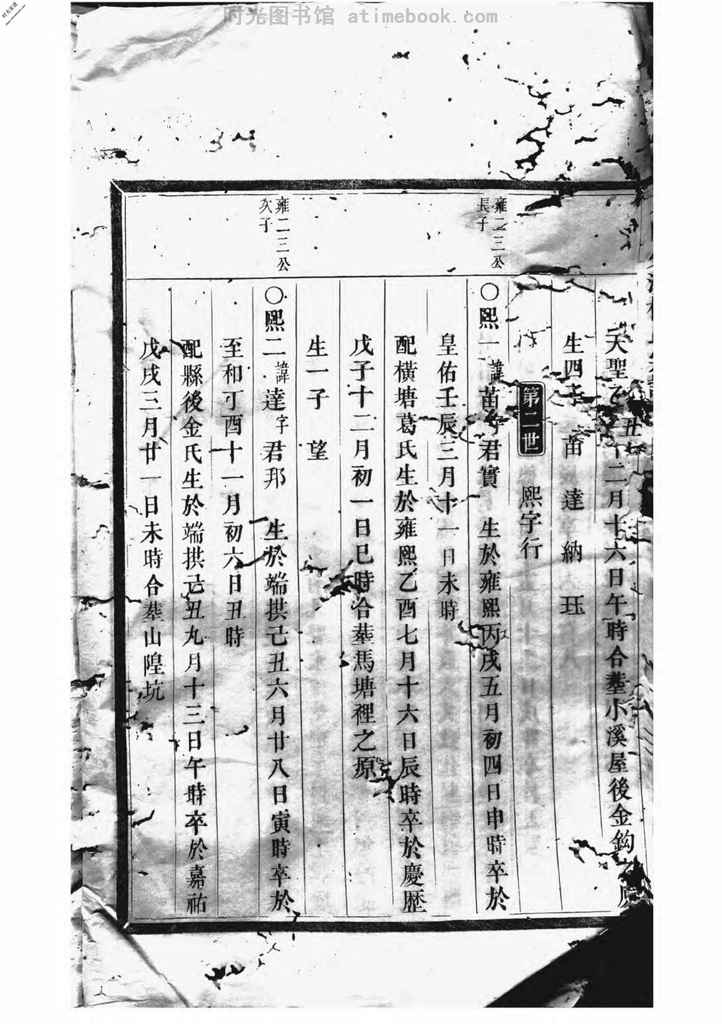 时光图书馆 atimebook.com
天聖乙丑二月十六日午時合塟小溪屋後金鈎
生四子 苗 達 納 珏
第二世 熙字行
雍二三公長子
○熙一 諱苗字君實 生於雍熙丙戌五月初四日申時卒於
皇佑壬辰三月十一日未時
配橫塘葛氏生於雍熙乙酉七月十六日辰時卒於慶歴
戊子十二月初一日巳時合塟馬塘裡之原
生一子 望
雍二三公次子
○熙二 諱達字君邦 生於端拱己丑六月廿八日寅時卒於
至和丁酉十一月初六日丑時
配縣後金氏生於端拱己丑九月十三日午時卒於嘉祐
戊戌三月廿一日未時合塟山隍坑